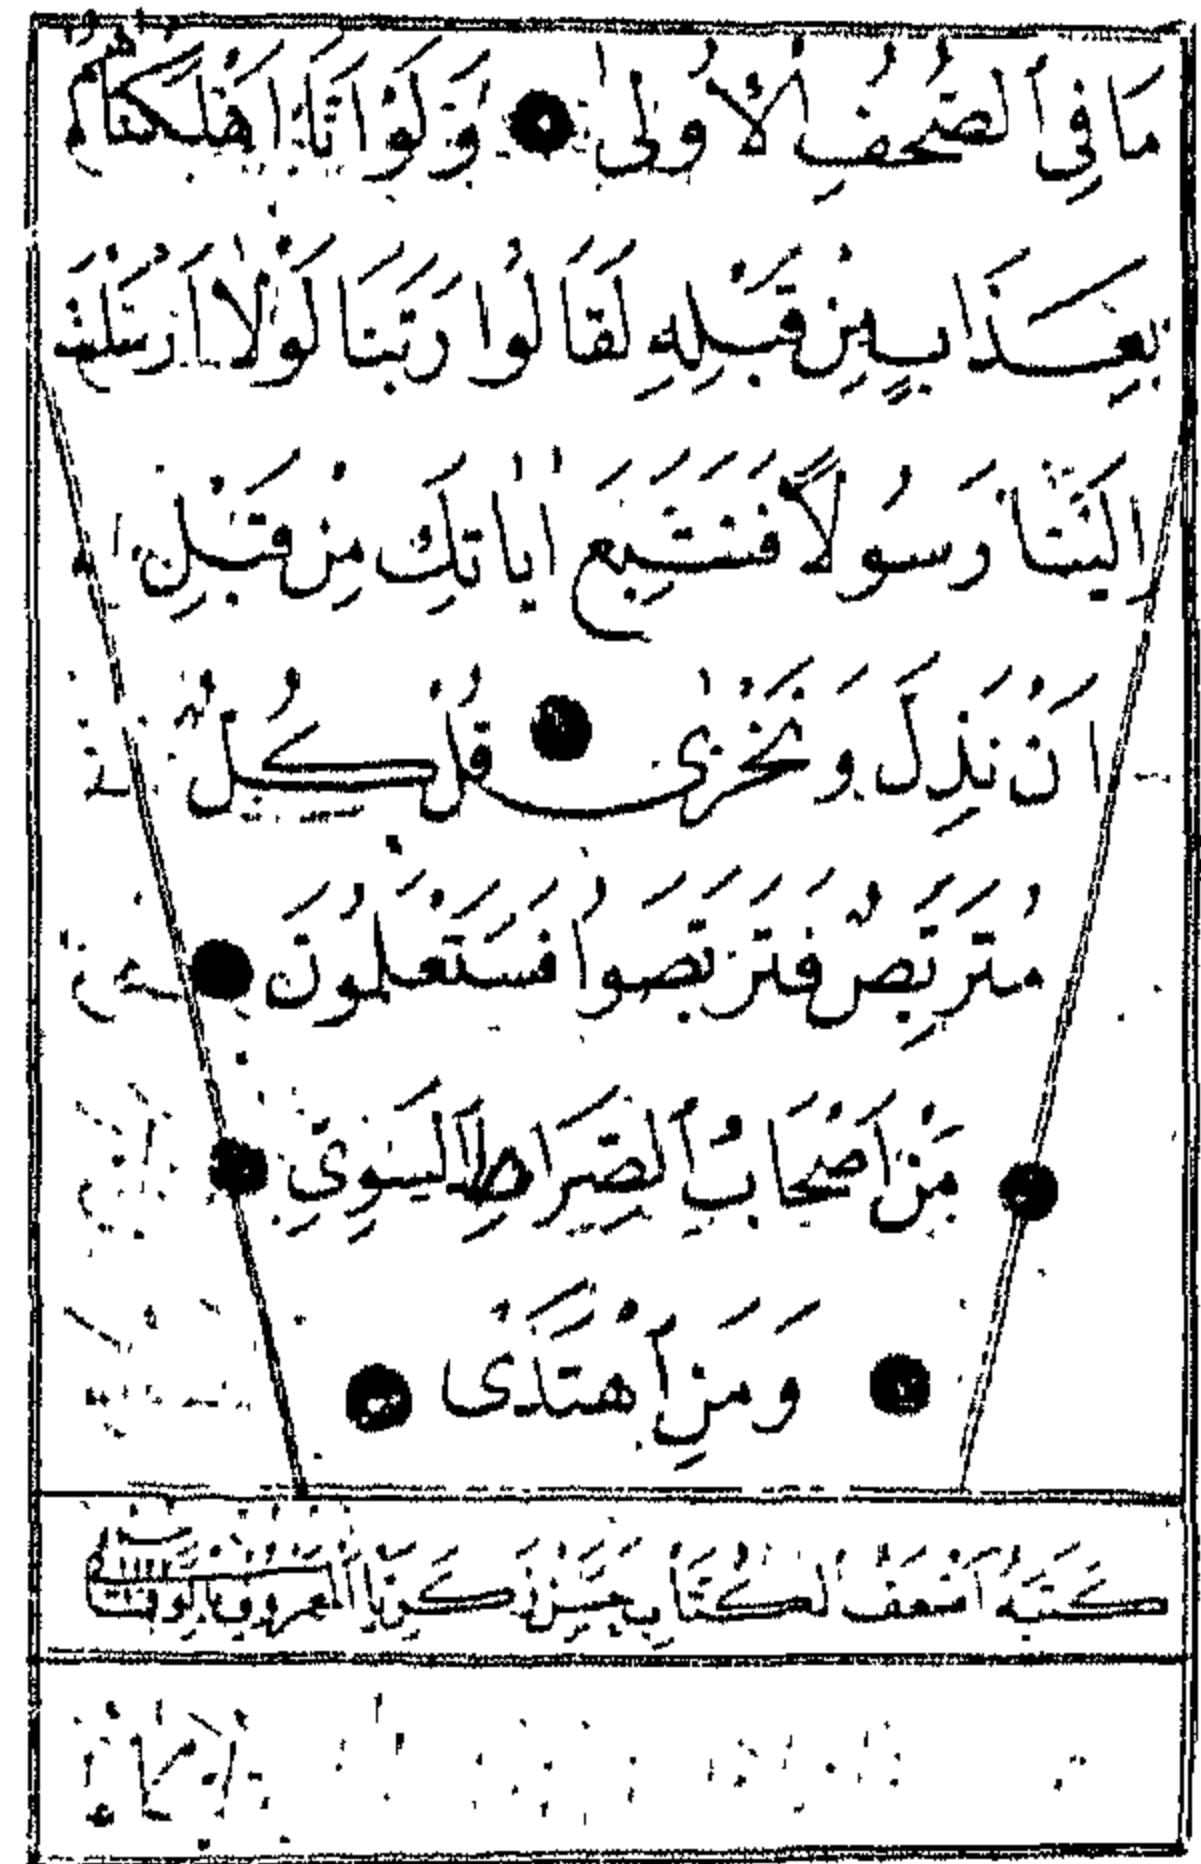 مَا فِي ٱلصُّحُفِ ٱلْأُولٰى وَلَوْ اَنَّٓا اَهْلَكْنَاهُمْ
بِعَذَابٍ مِنْ قَبْلِهِ لَقَالُوا رَبَّنَا لَوْلَٓا اَرْسَلْتَ
اِلَيْنَا رَسُولًا فَنَتَّبِعَ اٰيَاتِكَ مِنْ قَبْلِ
اَنْ نَذِلَّ وَنَخْزٰى قُلْ كُلٌّ
مُتَرَبِّصٌ فَتَرَبَّصُوا فَسَتَعْلَمُونَ
مَنْ اَصْحَابُ ٱلصِّرَاطِ ٱلسَّوِيِّ
وَمَنِ ٱهْتَدٰى
كَتَبَهُ اَضْعَفُ ٱلْكُتَّابِ حَسَنْ زَكَرِيَّا ٱلْمَعْرُوفُ